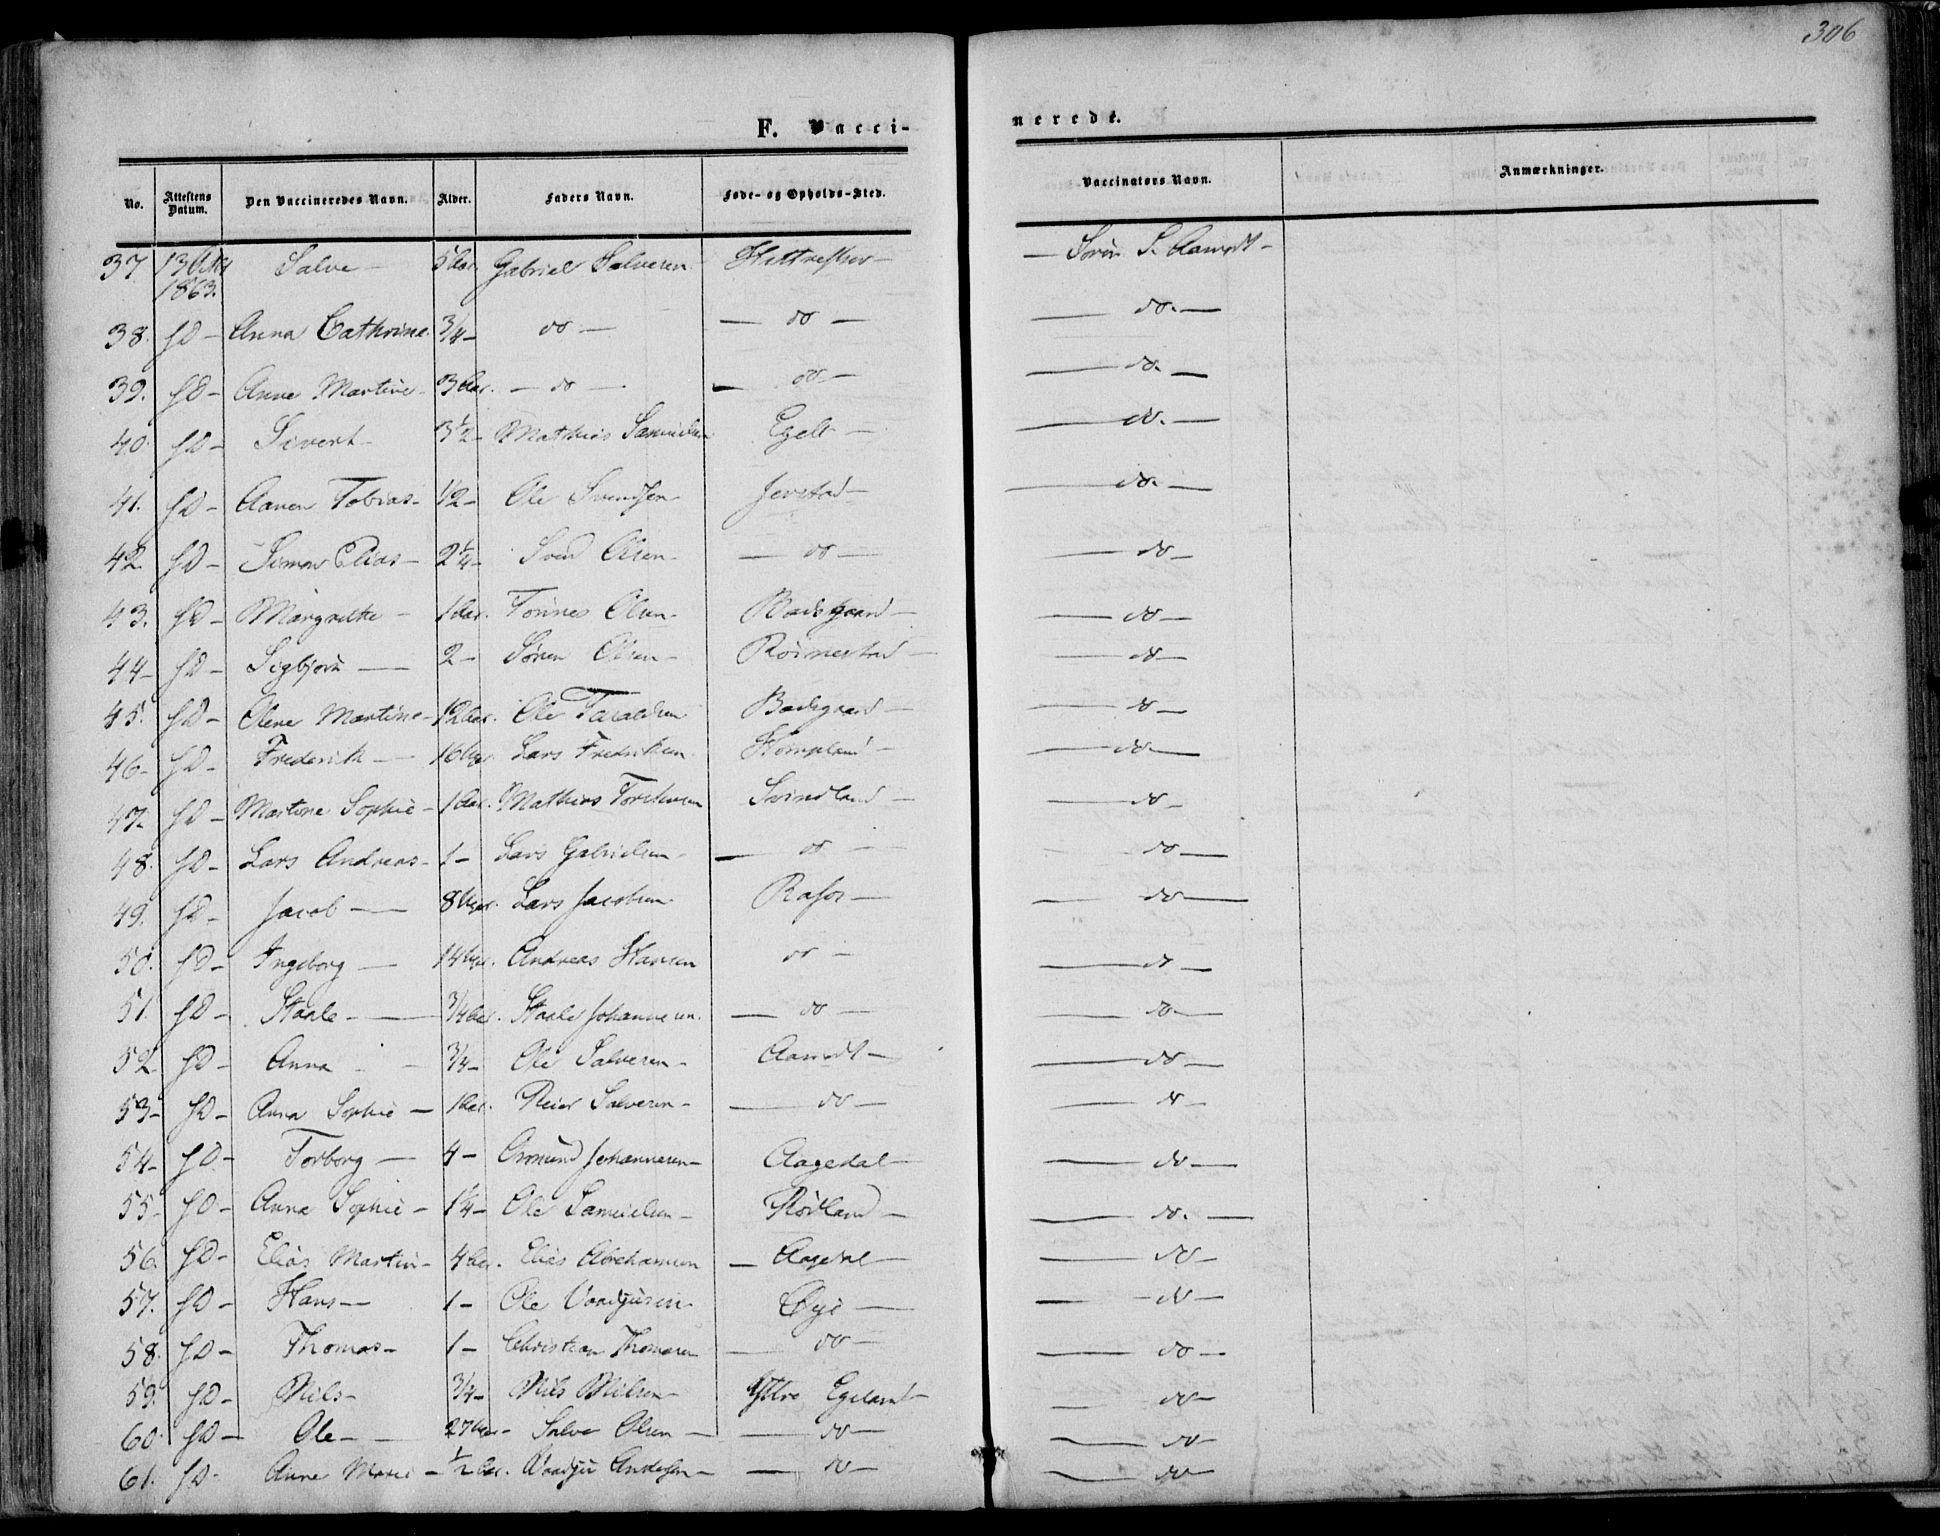 306
F. Vacci-
nerede.
No. Attestens Datum. Den Vaccineredes Navn. Alder. Faders Navn. Føde- og Opholds-Sted. Vaccinators Navn. Anmærkninger.
37. 13 Octbr 1863. Salve — 5 Aar. Gabriel Salvesen — Sørin S. Aamodt —
38. sD — Anna Cathrine 3/4 — do — — do — — do. —
39. sD — Anne Martine — 3 Aar. — do — — do — — do. —
40. sD — Sivert — 3 1/2 — Mathias Samuelsen Egeli — — do. —
41. sD — Aanen Tobias — 1/2 — Ole Svendsen — Jerstad — — do. —
42. sD — Simon Elias — 2 1/4 — Svend Olsen — — do — — do —
43. sD — Margrethe — 1 Aar. Tønnes Olsen — — do —
44 — sD — Sigbjørn — 2 — Søren Olsen — Röinestad — — do —
45. sD — Olene Martine — 12 Aar. Ole Taraldsen — do —
46 — sD — Frederik — 16 Lars Fredriksen Kompland — — do —
47. sD — Martine Sophie — 1 Aar. Mathias Torkelsen Svindland — — do —
48. sD — Lars Andreas — 1 — Lars Gabrielsen — — do — — do —
49. sD — Jacob — 8 Lars Jacobsen. Rafos — — do —
50. sD — Ingeborg — 14 Andreas Hansen do — — do —
51. sD — Staale — 3/4 Aar. Staale Johannesen. — do — — do —
52 sD — Anna — 3/4 — Ole Salvesen — Aamodt — — do —
53 — sD — Anna Sophie — 1 Aar. Peier Salvesen — — do — — do —
54 — sD — Torborg — 4 — Osmund Johannesen — Aagedal — — do —
55 — sD — Anna Sophie — 1/4 — Ole Samuelsen — Rödland — — do. —
56. sD — Elias Martin — 4 Aar. Elias Abrahamsen — Aagedal — — do —
57. sD — Hans — 1 — Ole Vaadjusen — Öye — — do —
58. sD — Thomas — 1 — Christian Thomesen — do — — do —
59. sD — Nils — 3/4 — Nils Nilsen — Yttre Egeland — — do —
60. sD — Ole — 27 Salve Olsen — — do — — do —
61. sD — Anne Marie — 1/2 Aar. Vaadju Andersen — — do — — do —